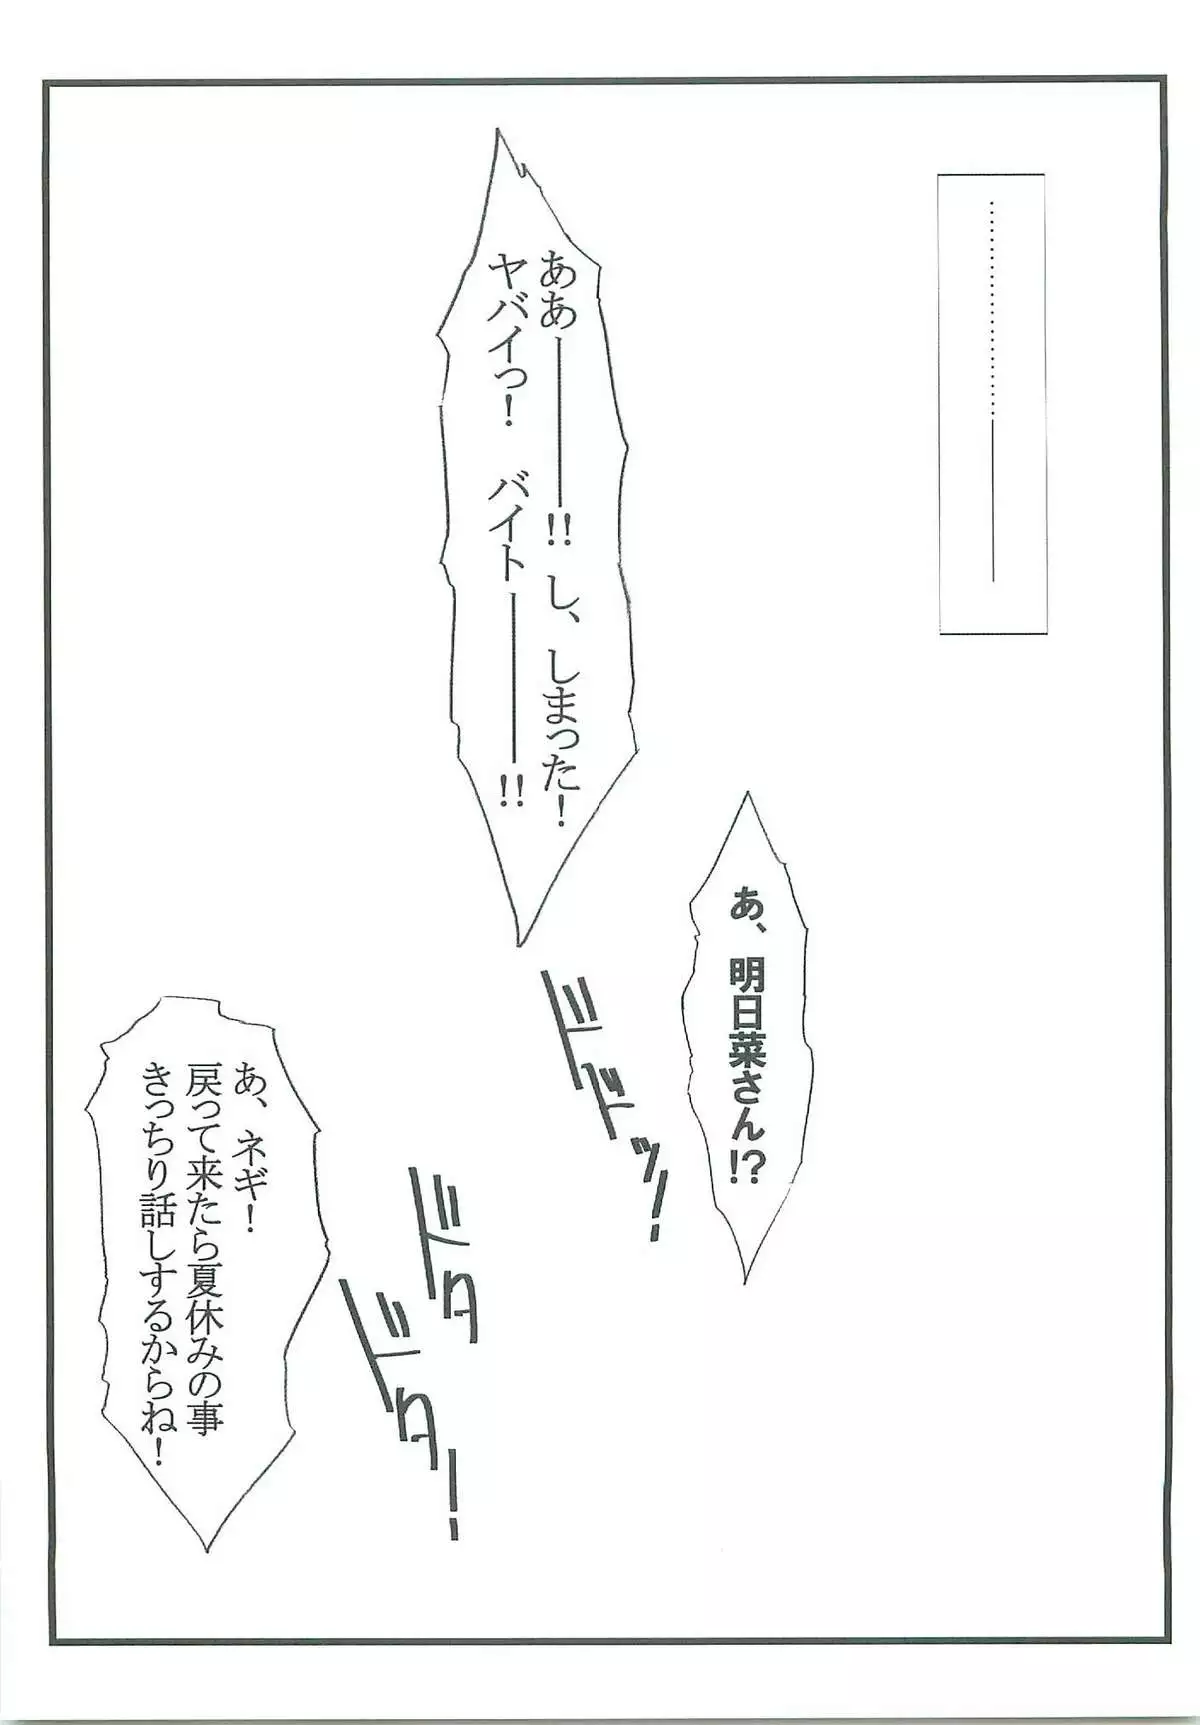 …………――
ああ――――!! し、しまった!
ヤバイっ! バイト――――!!
あ、明日菜さん!?
ドドドッ!
ドタ
ドタ――!
あ、ネギ!
戻って来たら夏休みの事
きっちり話しするからね!